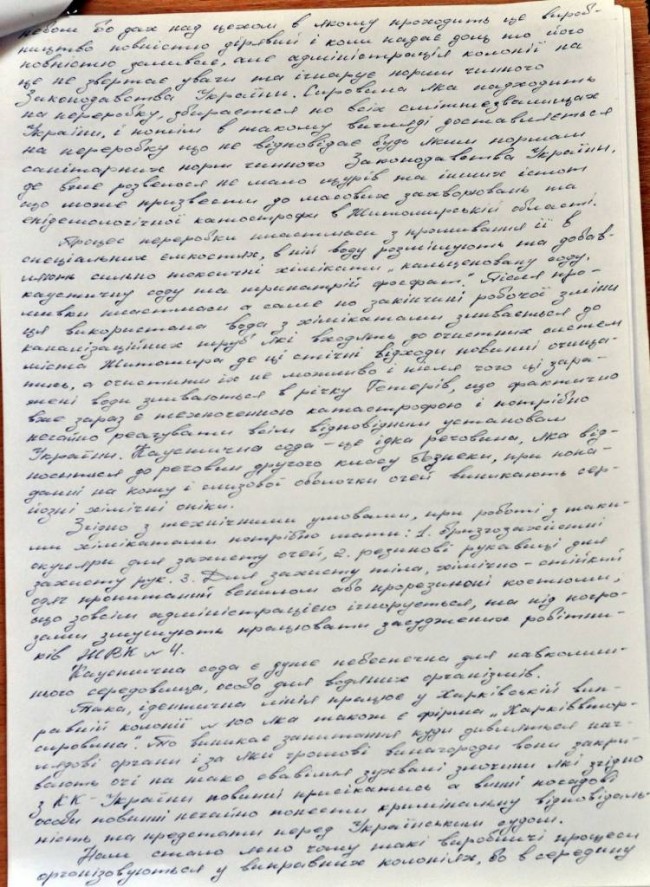 небом бо дах над цехом в якому проходить це вироб-
ництво повністю дірявий і коли падає дощ то його
повністю заливає, але адміністрація колонії на
це не звертає увачи та ігнарує норми чинного
Законодавства України. Сировина яка надходить
на переробку, збирається по всіх сміттєзвалищах
України, і потім в такому вигляді доставляється
на переробку що не відповідає будь яким нормам
санітарних норм чинного Законодавства України,
де вже розвелося не мало щурів та інших істот
що може призвести до масових захворювань та
епідемологічної катострофи в Житомирській області.
Процес переробки пластмаси з промивання її в
спеціальних емкостях, в ній воду розмішують та добав-
ляють сильно токсичні хімікати „кальценовану соду,
каустичну соду та тринатрій фосфат". Після про-
мивки пластмаси а саме по закінчині робочої зміни
ця використана вода з хімікатами зливається до
каналізаційних труб які входять до очистних систем
міста Житомира де ці стічні відходи повинні очища-
тись, а очистити їх не можливо і після чого ці зара-
жені води зливаються в річку Тетерів, що фактично
вже зараз є техногенною катастрофою і потрібно
негайно реагувати всім відповідним установам
України. Каустична сода - це їдка речовина, яка від-
носиться до речовин другого класу безпеки, при попа-
данні на кожу і слизової оболочки очей виникають сер-
йозні хімічні опіки.
Згідно з технічними умовами, при роботі з таки-
ми хімікатами потрібно мати: 1. бризгозахистні
окуляри для захисту очей, 2. резинові рукавиці для
захисту рук. 3. Для захисту тіла, хімічно-стійкий
одяг пропитаний венилом або прорезинені костюми,
що зовсім адміністрацією ігнорується, та під погро-
зами змушують працювати засуджених робітни-
ків ЖВК № 4.
Каустична сода є дуже небеспечна для навколиш-
нього середовища, особо для водяних організмів.
Така, ідентична лінія працює у Харківській вип-
равній колонії № 100 яка також є фірма „Харківвтор-
сировина". То виникає запитання куди дивляться наг-
лядові органи і за які грошові винагороди вони закри-
вають очі на тако свавілля зухвалі злочини які згідно
з КК - України повинні присікатись а винні посадові
особи повинні негайно понести кримінальну відповідаль-
ність та предстати перед Українським судом.
Нам стало ясно чому такі виробничі процеси
організовуються у виправних колоніях, бо в середину